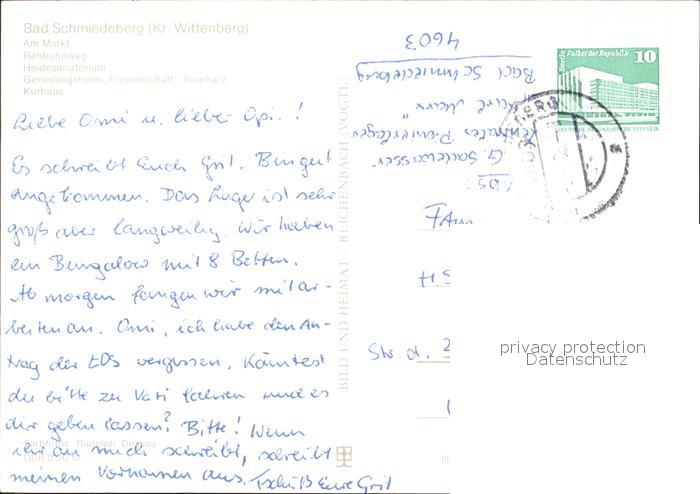 Bad Schmiedeberg (Kr. Wittenberg)
Am Markt
Rehhahnweg
Heidesanatorium
Genesungsheim „Freundschaft" Reinharz
Kurhaus
Liebe Omi u. lieber Opi!
Es schreibt Euch Grit. Bin gut
angekommen. Das Lager ist sehr
groß aber langweilig. Wir haben
ein Bungalow mit 8 Betten.
Ab morgen fangen wir mit ar-
beiten an. Omi, ich habe den An-
trag der EOS vergessen. Könntest
du bitte zu Vati fahren und es
dir geben lassen? Bitte! Wenn
ihr an mich schreibt, schreibt
meinen Vornamen aus. Tschüß Eure Grit
Farbfotos: Rudolph, Dessau
BILD UND HEIMAT · REICHENBACH (VOGTL)
Abs:
"Karl Marx"
Bad Schmiedeberg
4603
Berlin Palast der Republik
10
DEUTSCHE DEMOKRATISCHE REPUBLIK
FAM
Str. d. 2
privacy protection
Datenschutz